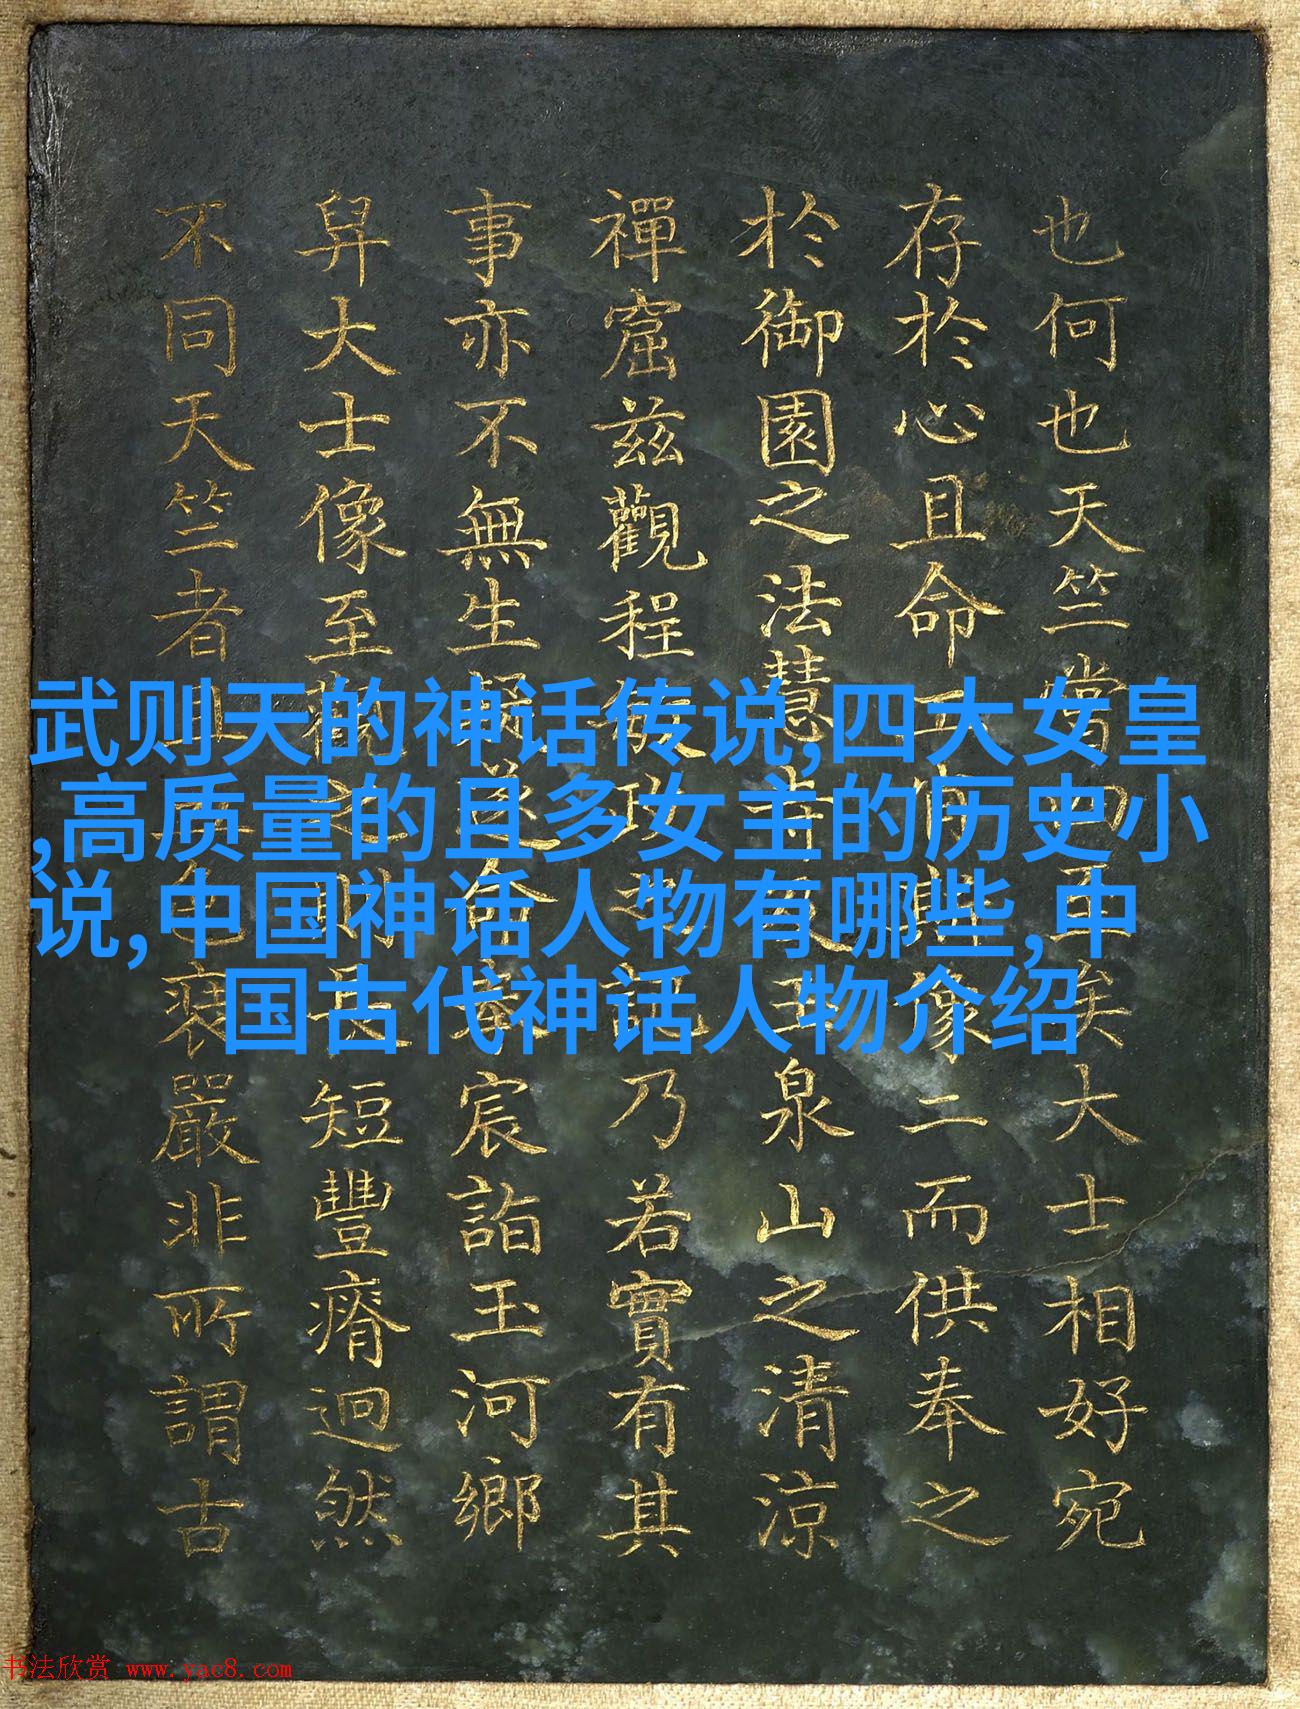 也何也天竺大士相好宛
存於心且命工像二而供奉之
於御園之法慧寺及玉泉山之清涼
禪窟茲觀程敏政之記乃若實有其
事亦不無生疑遂命奉宸詣玉河鄉
舁大士像至觀之則長短豐瘠迥然
不同天竺者且嚴非所謂古
武则天的神话传说,四大女皇
,高质量的且多女主的历史小
说,中国神话人物有哪些,中
国古代神话人物介绍
书法欣赏 www.yac8.com